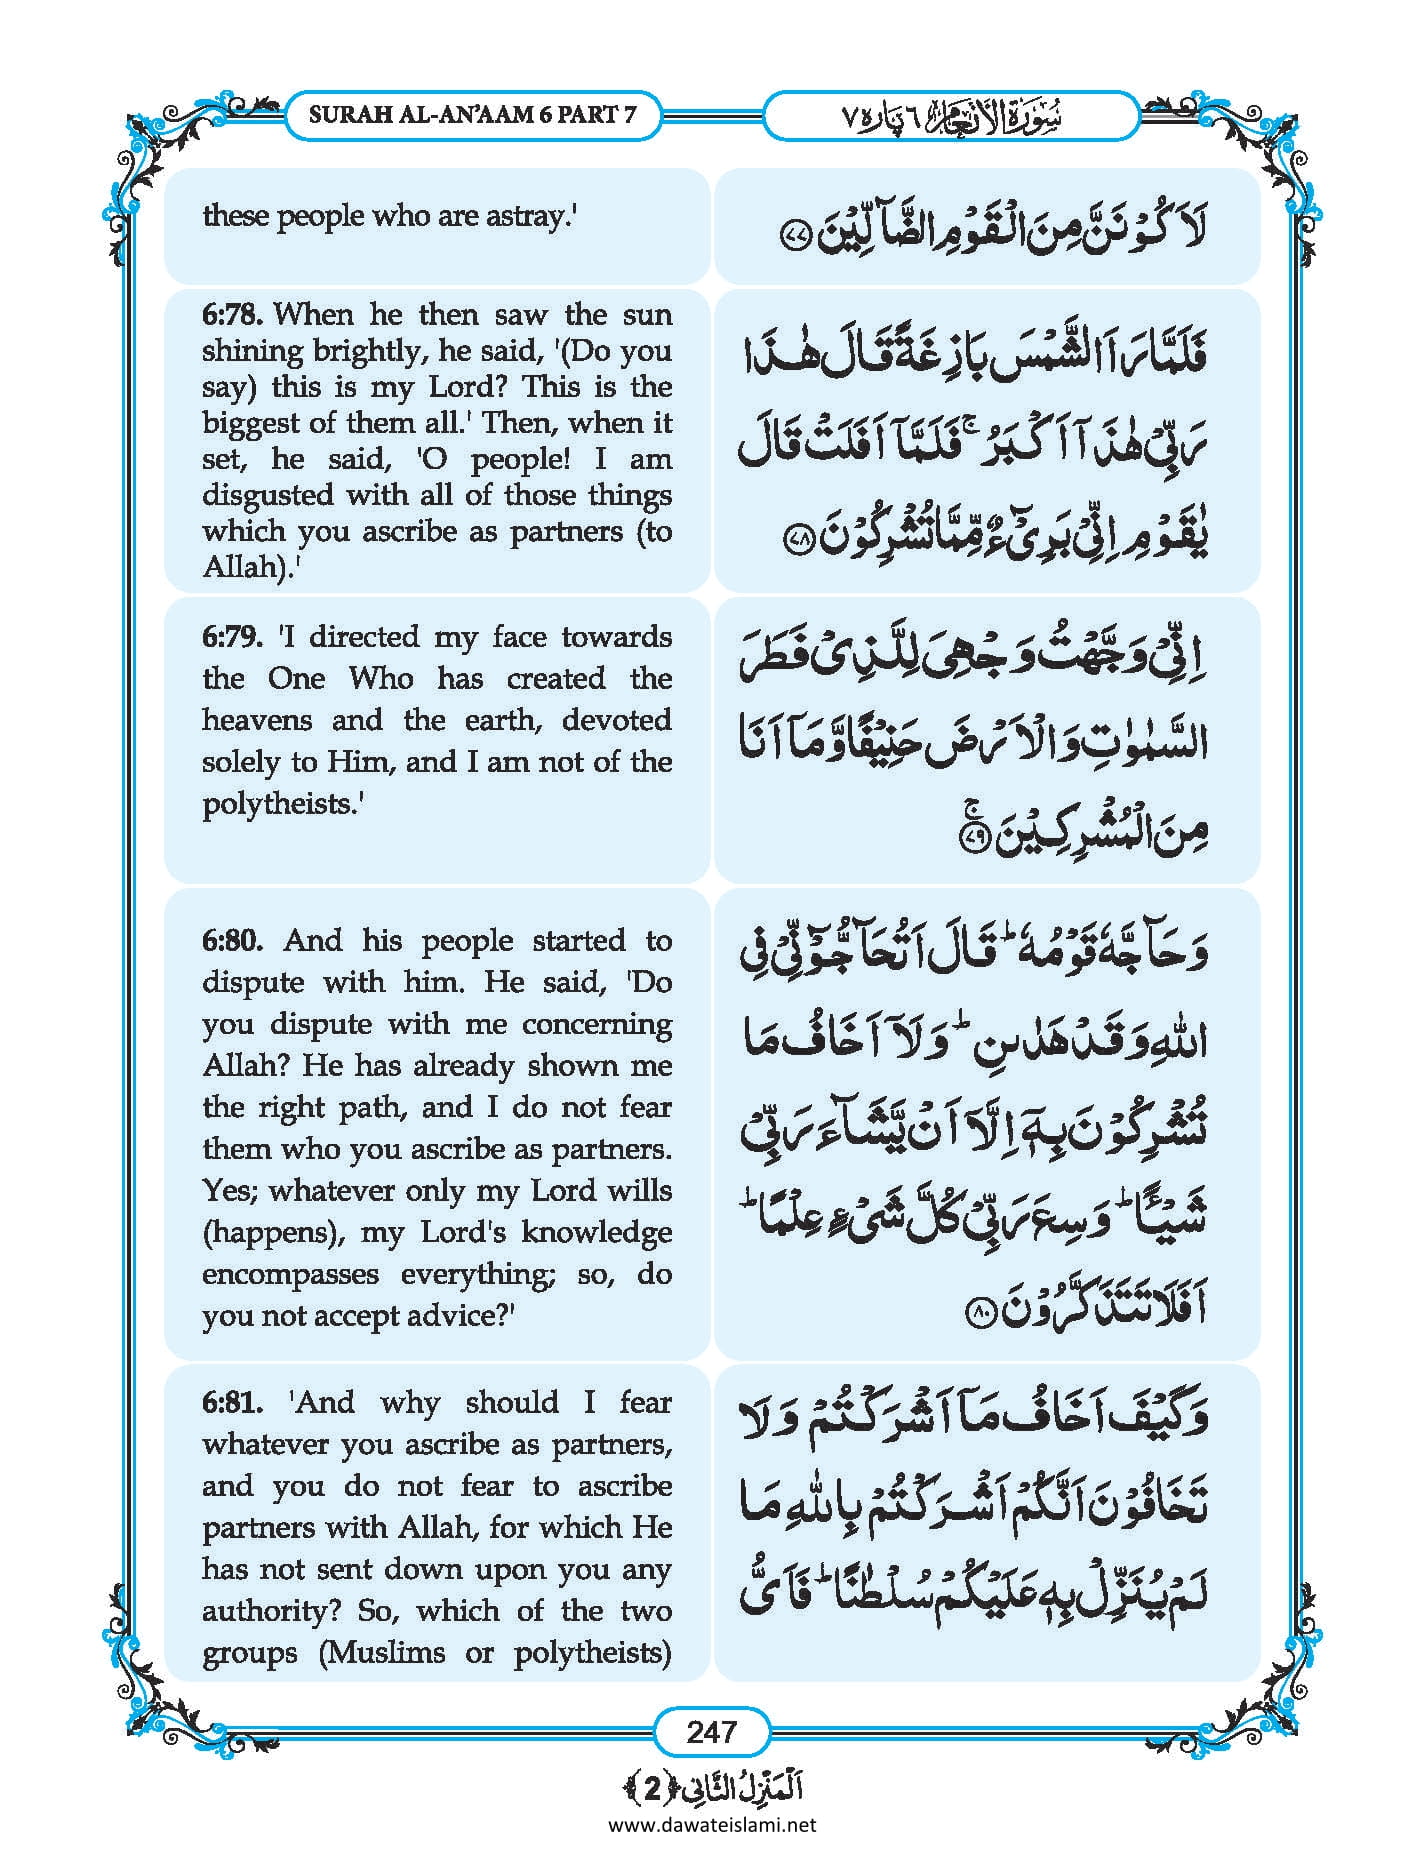 SURAH AL-AN'AAM 6 PART 7
سُوْرَةُ الْاَنْعَام ٦ پَارَہ ٧
these people who are astray.'
لَاَكُوْنَنَّ مِنَ الْقَوْمِ الضَّآلِّیْنَ ﴿۷۷﴾
6:78. When he then saw the sun
shining brightly, he said, '(Do you
say) this is my Lord? This is the
biggest of them all.' Then, when it
set, he said, 'O people! I am
disgusted with all of those things
which you ascribe as partners (to
Allah).'
فَلَمَّا رَاَ الشَّمْسَ بَازِغَةً قَالَ هٰذَا
رَبِّیْ هٰذَاۤ اَكْبَرُ ۚ فَلَمَّاۤ اَفَلَتْ قَالَ
یٰقَوْمِ اِنِّیْ بَرِیْٓءٌ مِّمَّا تُشْرِكُوْنَ ﴿۷۸﴾
6:79. 'I directed my face towards
the One Who has created the
heavens and the earth, devoted
solely to Him, and I am not of the
polytheists.'
اِنِّیْ وَجَّهْتُ وَجْهِیَ لِلَّذِیْ فَطَرَ
السَّمٰوٰتِ وَ الْاَرْضَ حَنِیْفًا وَّ مَاۤ اَنَا
مِنَ الْمُشْرِكِیْنَ ﴿ۚ۷۹﴾
6:80. And his people started to
dispute with him. He said, 'Do
you dispute with me concerning
Allah? He has already shown me
the right path, and I do not fear
them who you ascribe as partners.
Yes; whatever only my Lord wills
(happens), my Lord's knowledge
encompasses everything; so, do
you not accept advice?'
وَ حَآجَّهٗ قَوْمُهٗ ؕ قَالَ اَتُحَآجُّوْٓنِّیْ فِی
اللّٰهِ وَ قَدْ هَدٰىنِ ؕ وَ لَاۤ اَخَافُ مَا
تُشْرِكُوْنَ بِهٖۤ اِلَّاۤ اَنْ یَّشَآءَ رَبِّیْ
شَیْــٴًـا ؕ وَسِعَ رَبِّیْ كُلَّ شَیْءٍ عِلْمًا ؕ
اَفَلَا تَتَذَكَّرُوْنَ ﴿۸۰﴾
6:81. 'And why should I fear
whatever you ascribe as partners,
and you do not fear to ascribe
partners with Allah, for which He
has not sent down upon you any
authority? So, which of the two
groups (Muslims or polytheists)
وَ كَیْفَ اَخَافُ مَاۤ اَشْرَكْتُمْ وَ لَا
تَخَافُوْنَ اَنَّكُمْ اَشْرَكْتُمْ بِاللّٰهِ مَا
لَمْ یُنَزِّلْ بِهٖ عَلَیْكُمْ سُلْطٰنًا ؕ فَاَیُّ
247
اَلْمَنْزِلُ الثَّانِی ﴿2﴾
www.dawateislami.net